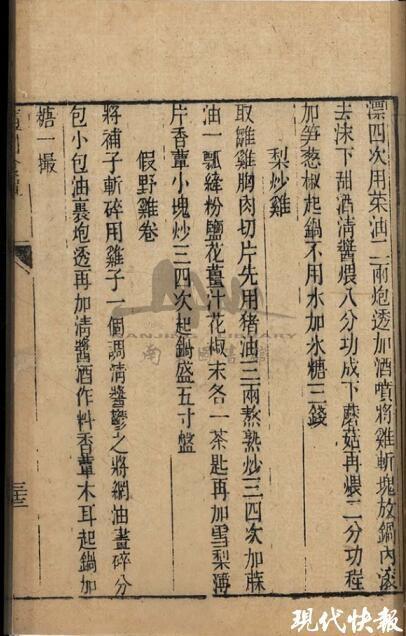 漂四次用菜油二兩炮透加酒噴將雞斬塊放鍋內滾
去沫下甜酒清醬煨八分功成下蘑菇再煨二分功程
加笋葱椒起鍋不用水加氷糖三錢
梨炒雞
取雛雞胸肉切片先用猪油三兩熬熟炒三四次加蔴
油一瓢縴粉鹽花薑汁花椒末各一茶匙再加雪梨薄
片香蕈小塊炒三四次起鍋盛五寸盤
假野雞卷
將補子斬碎用雞子一個調清醬鬱之將網油畫碎分
包小包油裏炮透再加清醬酒作料香蕈木耳起鍋加
糖一撮
三十三
南京圖書館
現代快報